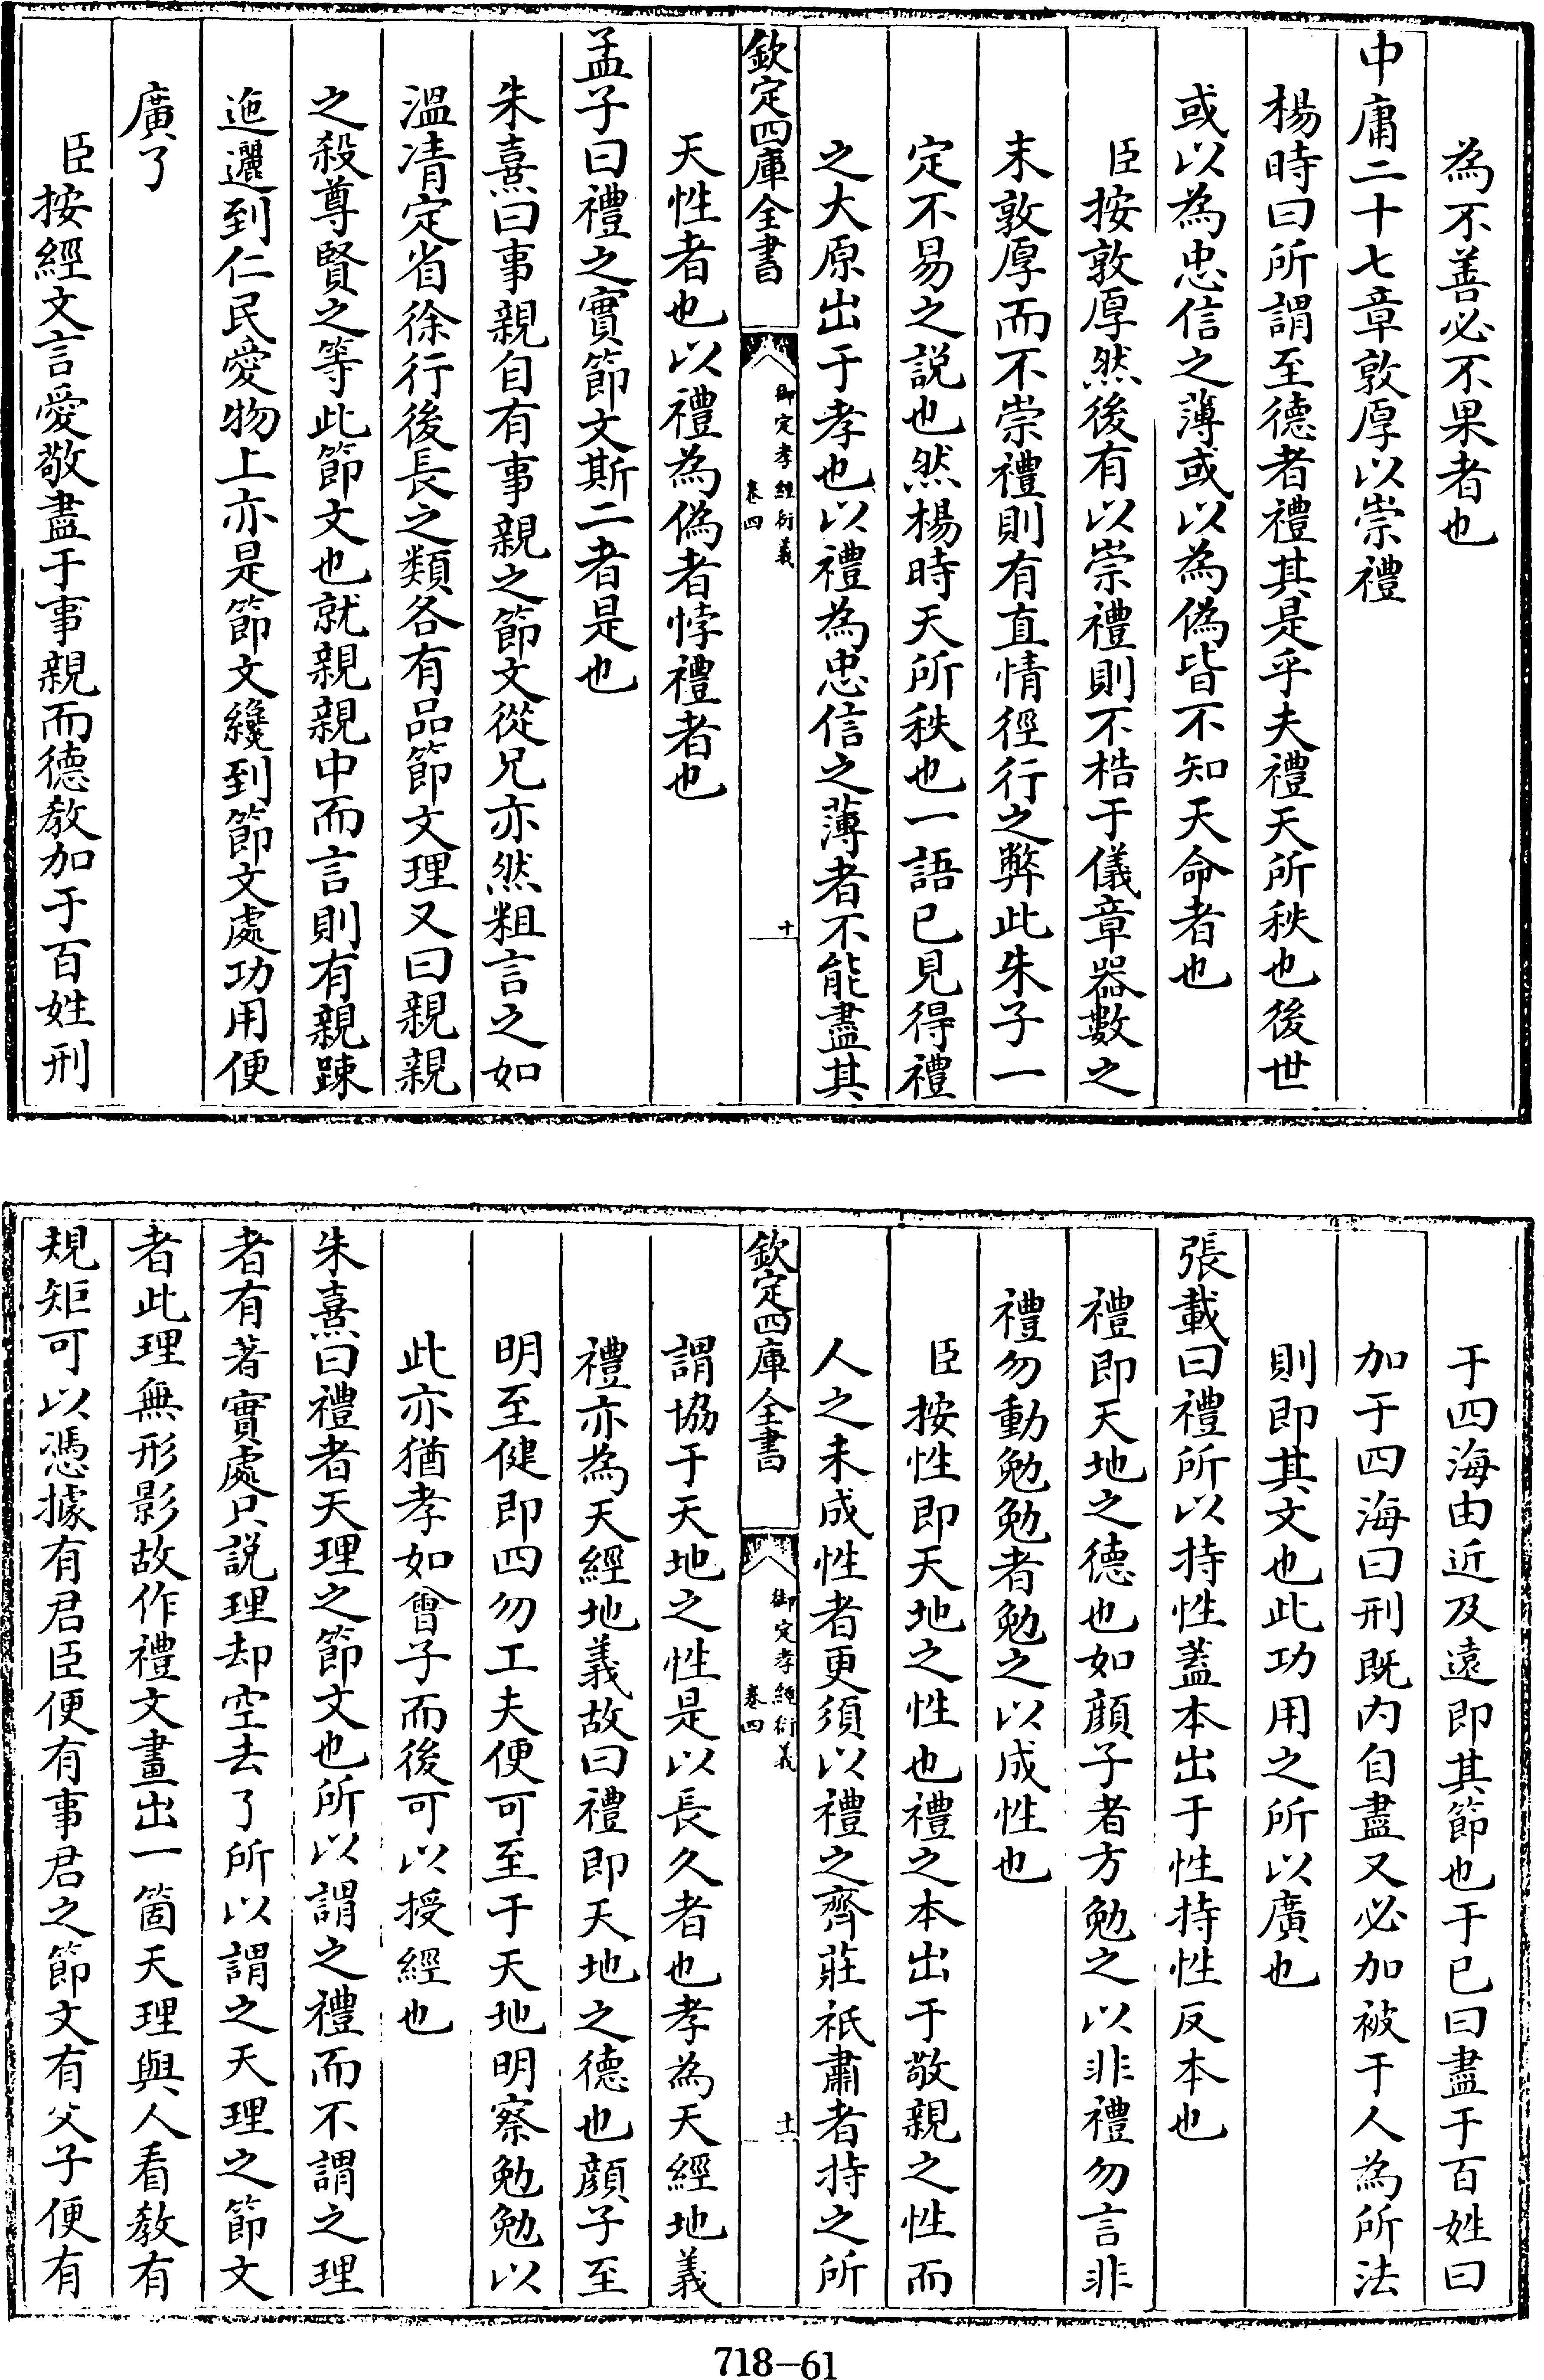 為不善必不果者也
中庸二十七章敦厚以崇禮
楊時曰所謂至德者禮其是乎夫禮天所秩也後世
或以為忠信之薄或以為偽皆不知天命者也
臣按敦厚然後有以崇禮則不梏于儀章器數之
末敦厚而不崇禮則有直情徑行之弊此朱子一
定不易之說也然楊時天所秩也一語已見得禮
之大原出于孝也以禮為忠信之薄者不能盡其
欽定四庫全書
御定孝經衍義
卷四
十
天性者也以禮為偽者悖禮者也
孟子曰禮之實節文斯二者是也
朱熹曰事親自有事親之節文從兄亦然粗言之如
溫凊定省徐行後長之類各有品節文理又曰親親
之殺尊賢之等此節文也就親親中而言則有親踈
迤邐到仁民愛物上亦是節文纔到節文處功用便
廣了
臣按經文言愛敬盡于事親而德教加于百姓刑
于四海由近及遠即其節也于已曰盡于百姓曰
加于四海曰刑既内自盡又必加被于人為所法
則即其文也此功用之所以廣也
張載曰禮所以持性蓋本出于性持性反本也
禮即天地之德也如顔子者方勉之以非禮勿言非
禮勿動勉勉者勉之以成性也
臣按性即天地之性也禮之本出于敬親之性而
人之未成性者更須以禮之齊莊祇肅者持之所
欽定四庫全書
御定孝經衍義
卷四
十一
謂協于天地之性是以長久者也孝為天經地義
禮亦為天經地義故曰禮即天地之德也顔子至
明至健即四勿工夫便可至于天地明察勉勉以
此亦猶孝如曾子而後可以授經也
朱熹曰禮者天理之節文也所以謂之禮而不謂之理
者有著實處只說理却空去了所以謂之天理之節文
者此理無形影故作禮文畫出一箇天理與人看教有
規矩可以憑據有君臣便有事君之節文有父子便有
718-61